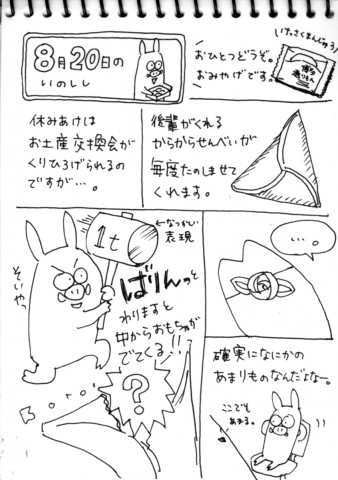 8月20日の
いのしし
おひとつどうぞ。
おみやげです。
いたさくまんじゅう
博多
通りもん
休みあけは
お土産交換会が
くりひろげられるの
ですが…。
後輩がくれる
からからせんべいが
毎度たのしませて
くれます。
そいやっ
1t
←なつかしい
表現
ばりんっと
わりますと
中からおもちゃが
でてくる!!
?
ポロッ
…。
確実になにかの
あまりものなんだよなー。
ここでも
あまる。